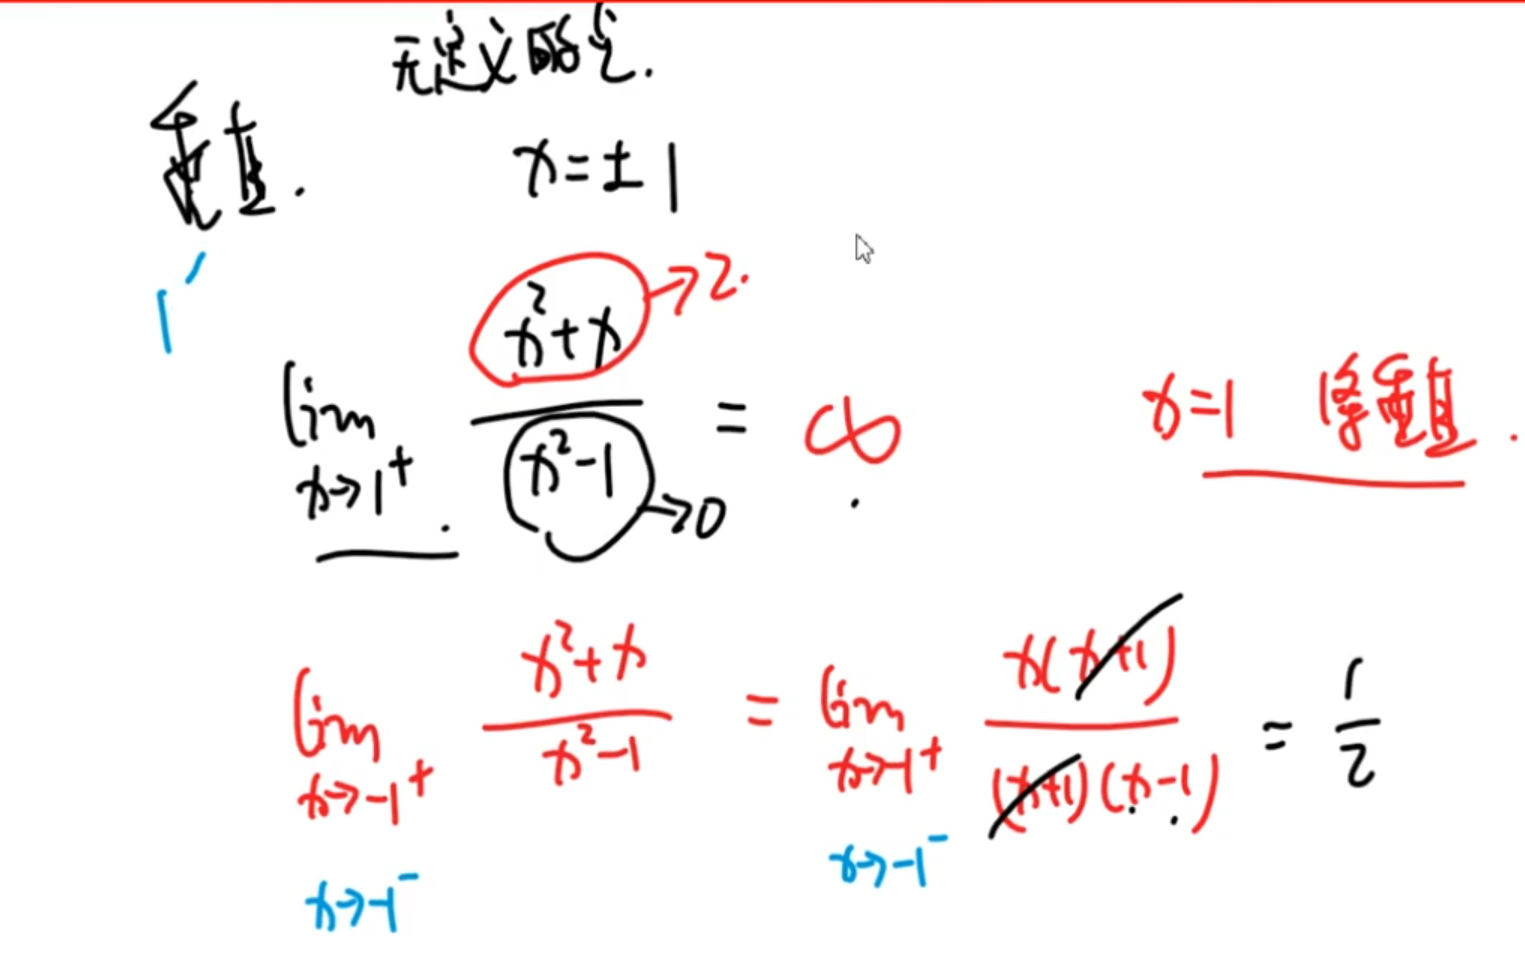 无定义的点.
垂直.
x=±1
1'
lim x→1⁺ (x²+x)/(x²-1) = ∞
→2.
→0
x=1 径垂直.
lim x→-1⁺ (x²+x)/(x²-1) = lim x→-1⁺ x(x+1)/((x+1)(x-1)) = 1/2
x→-1⁻
x→-1⁻